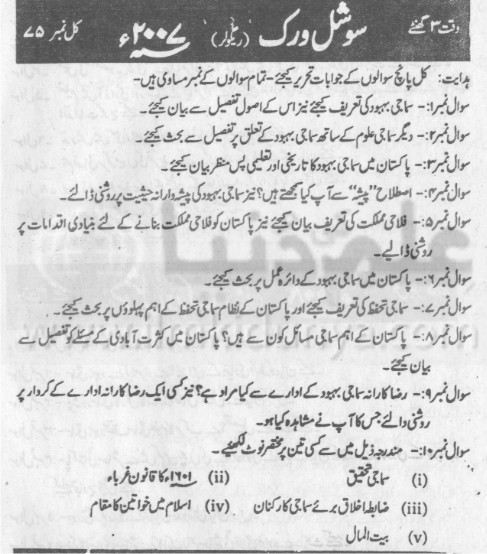 وقت ۳ گھنٹے
سوشل ورک (ریگولر) ۲۰۰۷ء
کل نمبر ۷۵
ہدایت: کل پانچ سوالوں کے جوابات تحریر کیجئے۔ تمام سوالوں کے نمبر مساوی ہیں۔
سوال نمبر۱:- سماجی بہبود کی تعریف کیجئے نیز اس کے اصول تفصیل سے بیان کیجئے۔
سوال نمبر۲:- دیگر سماجی علوم کے ساتھ سماجی بہبود کے تعلق پر تفصیل سے بحث کیجئے۔
سوال نمبر۳:- پاکستان میں سماجی بہبود کا تاریخی اور تعلیمی پس منظر بیان کیجئے۔
سوال نمبر۴:- اصطلاح "پیشہ" سے آپ کیا سمجھتے ہیں؟ نیز سماجی بہبود کی پیشہ ورانہ حیثیت پر روشنی ڈالئے۔
سوال نمبر۵:- فلاحی مملکت کی تعریف بیان کیجئے نیز پاکستان کو فلاحی مملکت بنانے کے لئے بنیادی اقدامات پر
روشنی ڈالیے۔
سوال نمبر۶:- پاکستان میں سماجی بہبود کے دائرہ عمل پر بحث کیجئے۔
سوال نمبر۷:- سماجی تحفظ کی تعریف کیجئے اور پاکستان کے نظام سماجی تحفظ کے اہم پہلوؤں پر بحث کیجئے۔
سوال نمبر۸:- پاکستان کے اہم سماجی مسائل کون سے ہیں؟ پاکستان میں کثرت آبادی کے مسئلے کو تفصیل سے
بیان کیجئے۔
سوال نمبر۹:- رضاکارانہ سماجی بہبود کے ادارے سے کیا مراد ہے؟ نیز کسی ایک رضاکارانہ ادارے کے کردار پر
روشنی ڈالئے جس کا آپ نے مشاہدہ کیا ہو۔
سوال نمبر۱۰:- مندرجہ ذیل میں سے کسی تین پر مختصر نوٹ لکھئیے۔
(i) سماجی تحقیق (ii) ۱۶۰۱ء کا قانون غرباء
(iii) ضابطہ اخلاق برائے سماجی کارکنان (iv) اسلام میں خواتین کا مقام
(v) بیت المال